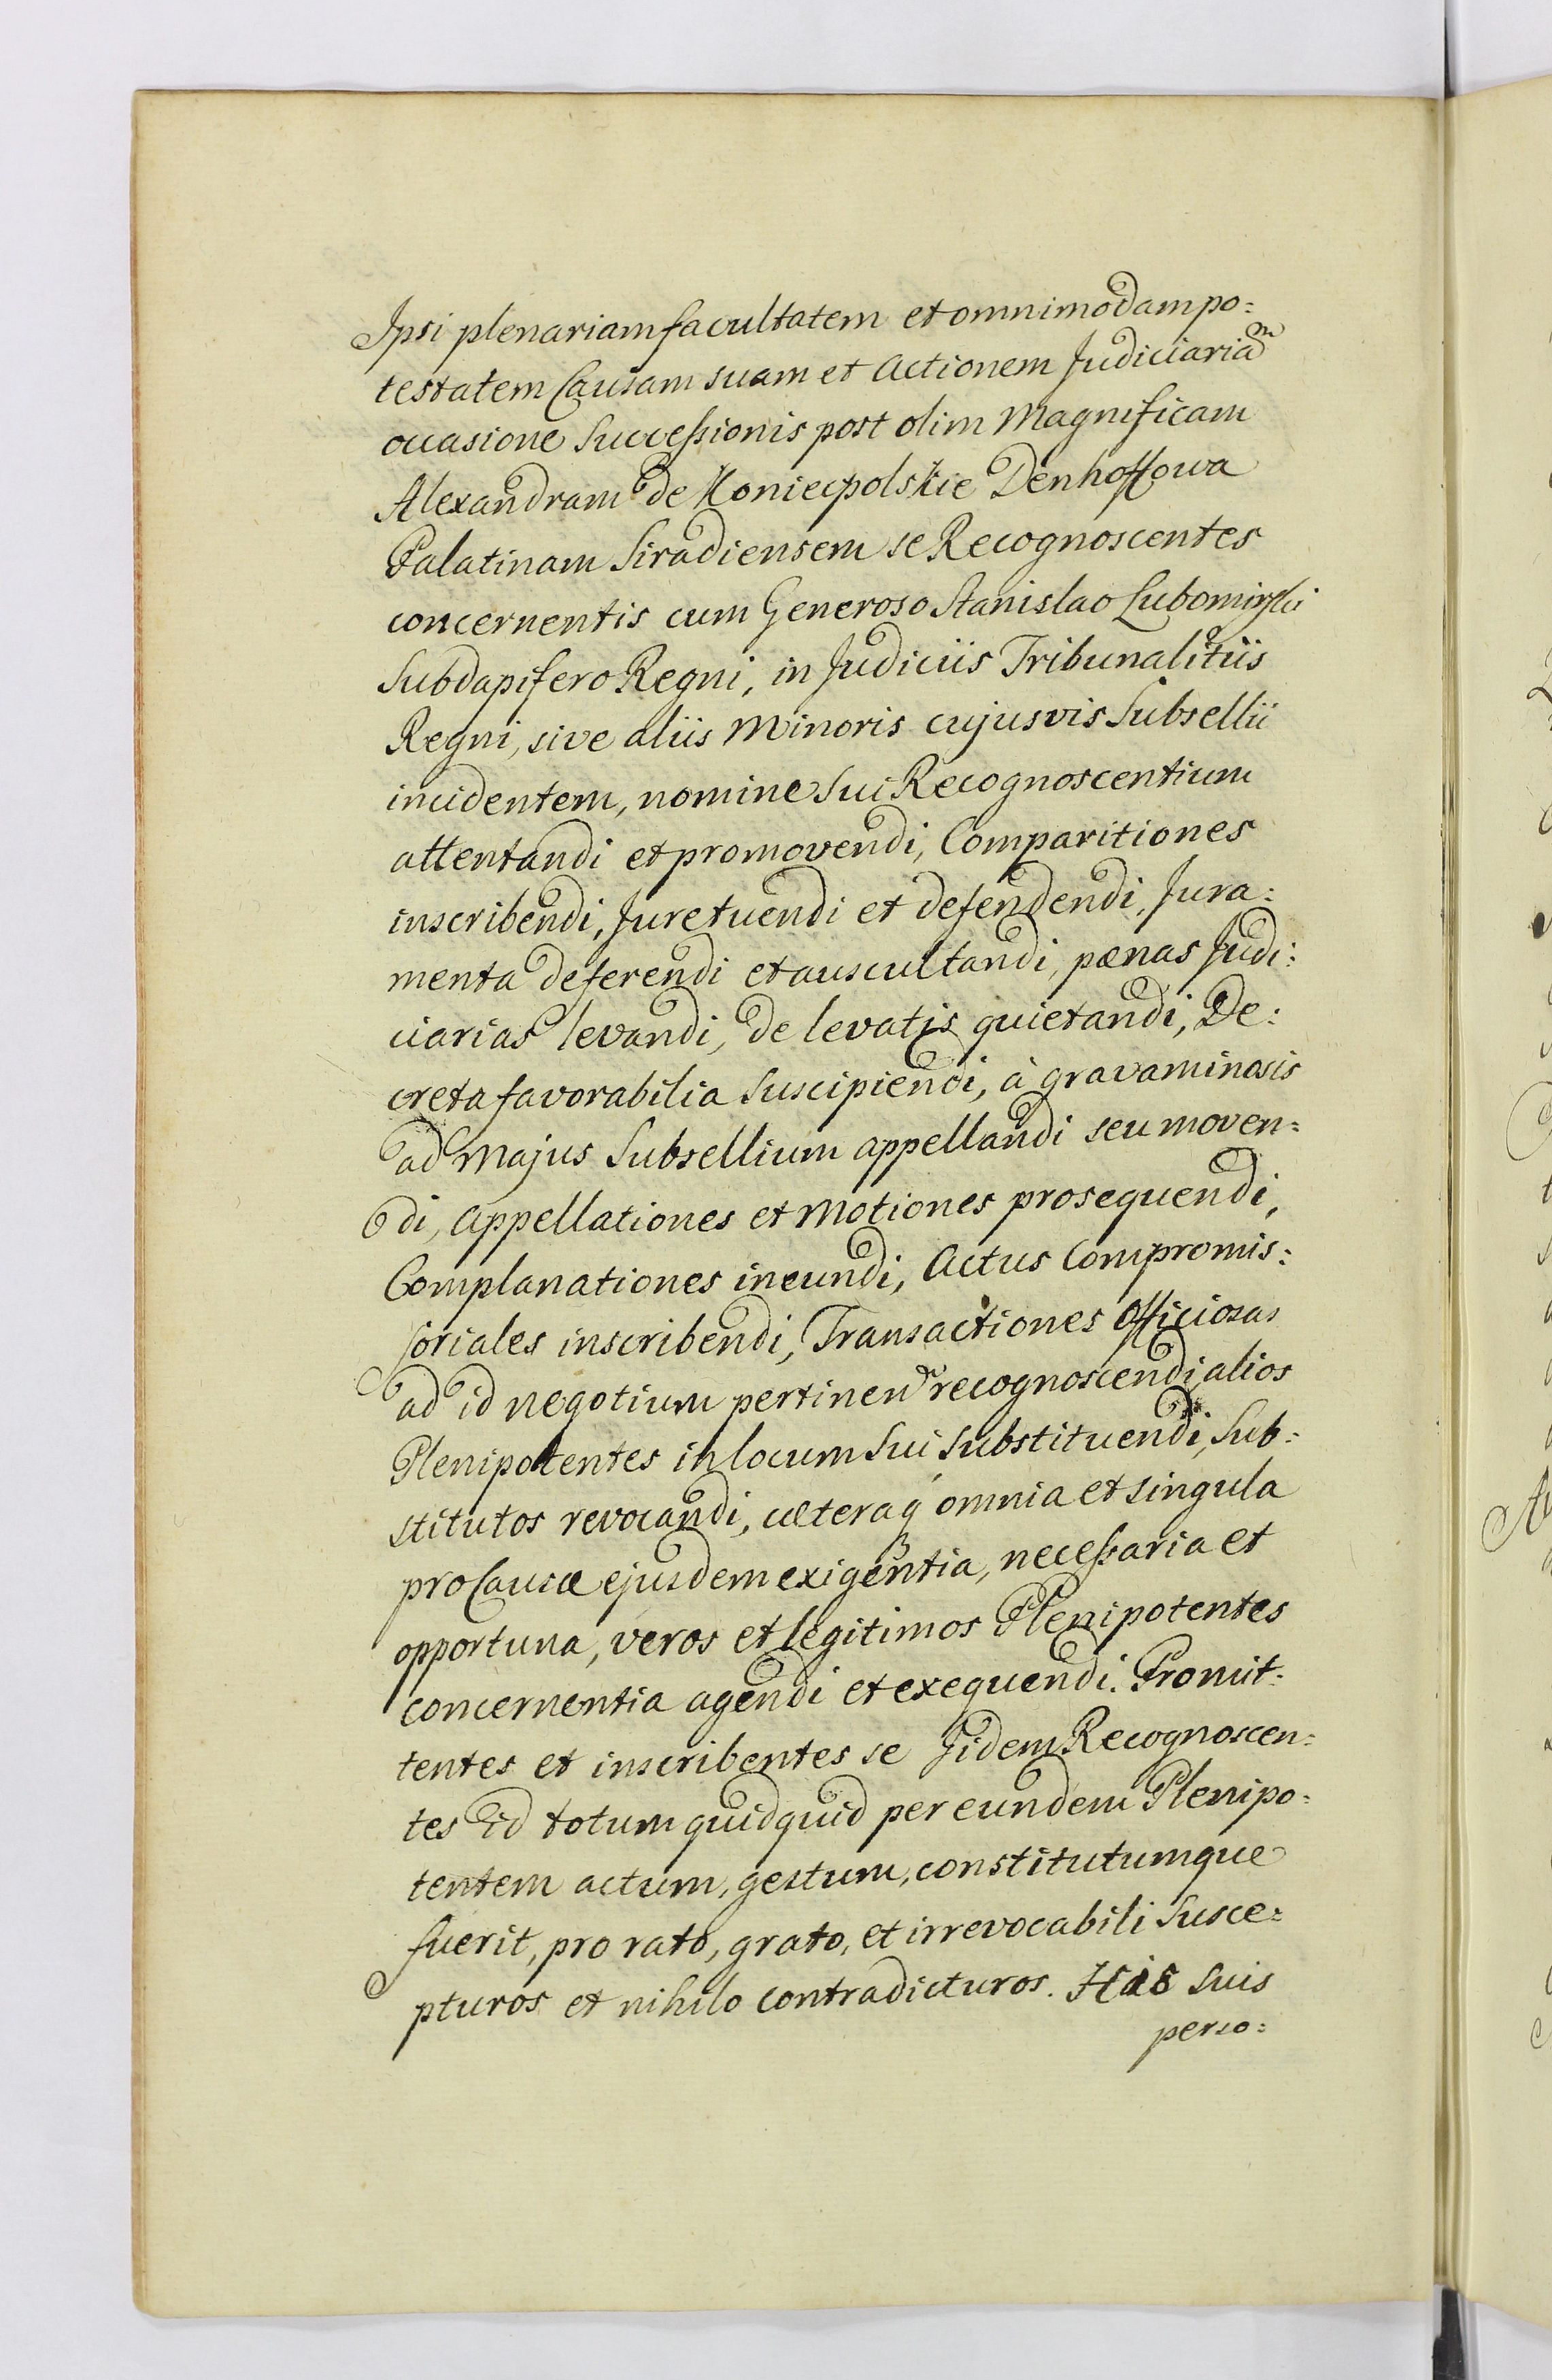 Ipsi plenariam facultatem et omnimodam po:
testatem Causam suam et Actionem Judiciariam
occasione Successionis post olim Magnificam
Alexandram de Koniecpolskie Denhoffowa
Palatinam Siradiensem se Recognoscentes
concernentis cum Generoso Stanislao Lubomirski
Subdapifero Regni, in Judiciis Tribunalitiis
Regni, sive aliis Minoris cujusvis Subsellii
incidentem, nomine Sui Recognoscentium
attentandi et promovendi, Comparitiones
inscribendi, Jure tuendi et defendendi, Jura:
menta deferendi et auscultandi, pœnas Judi:
ciarias levandi, de levatis quietandi, De:
creta favorabilia Suscipiendi, à gravaminosis
ad Majus Subsellium appellandi seu moven:
di, Appellationes et Motiones prosequendi,
Complanationes ineundi, Actus Compromis:
soriales inscribendi, Transactiones Officiosas
ad id negotium pertinen recognoscendi, alios
Plenipotentes in locum Sui Substituendi, Sub:
stitutos revocandi, cæteraq́ omnia et singula
pro Causæ ejusdem exigentia, necessaria et
opportuna, veros et legitimos Plenipotentes
concernentia agendi et exequendi. Promit:
tentes et inscribentes se Iidem Recognoscen:
tes id totum quidquid per eundem Plenipo:
tentem actum, gestum, constitutumque
fuerit, pro rato, grato, et irrevocabili Susce:
pturos et nihilo Contradicturos. His Suis
perso: